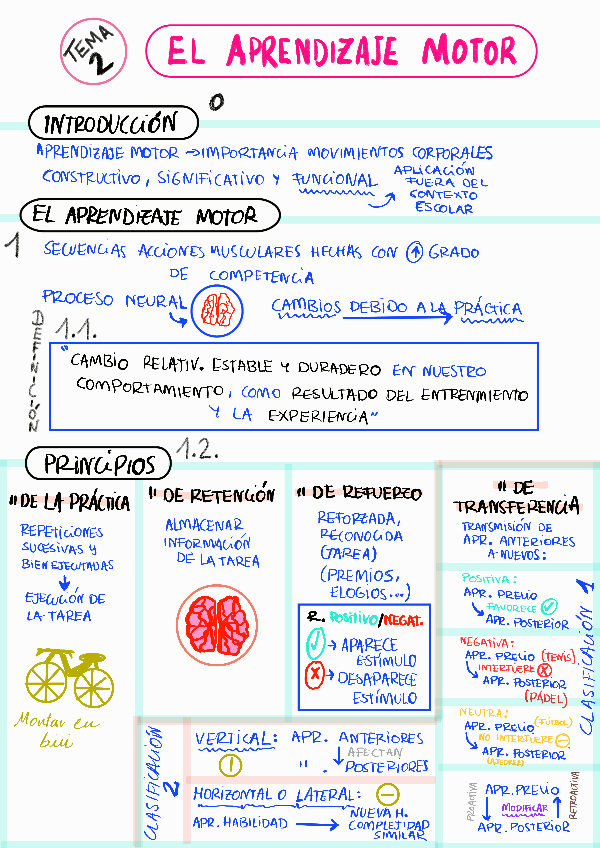 TEMA 2
EL APRENDIZAJE MOTOR
0
INTRODUCCIÓN
APRENDIZAJE MOTOR → IMPORTANCIA MOVIMIENTOS CORPORALES
CONSTRUCTIVO, SIGNIFICATIVO Y FUNCIONAL
APLICACIÓN
FUERA DEL
CONTEXTO
ESCOLAR
EL APRENDIZAJE MOTOR
1
SECUENCIAS ACCIONES MUSCULARES HECHAS CON ↑ GRADO
DE COMPETENCIA
PROCESO NEURAL
CAMBIOS DEBIDO A LA PRÁCTICA
DEFINICIÓN
1.1.
"CAMBIO RELATIV. ESTABLE Y DURADERO EN NUESTRO
COMPORTAMIENTO, COMO RESULTADO DEL ENTRENMIENTO
Y LA EXPERIENCIA"
PRINCIPIOS
1.2.
" DE LA PRÁCTICA
REPETICIONES
SUCESIVAS Y
BIEN EJECUTADAS
↓
EJECUCIÓN DE
LA TAREA
Montar en
bici
" DE RETENCIÓN
ALMACENAR
INFORMACIÓN
DE LA TAREA
" DE REFUERZO
REFORZADA,
RECONOCIDA
(TAREA)
(PREMIOS,
ELOGIOS...)
R. POSITIVO/NEGAT.
✓ → APARECE
ESTÍMULO
X → DESAPARECE
ESTÍMULO
" DE
TRANSFERENCIA
TRANSMISIÓN DE
APR. ANTERIORES
A NUEVOS:
CLASIFICACIÓN 1
POSITIVA:
APR. PREVIO
FAVORECE ✓
APR. POSTERIOR
NEGATIVA:
APR. PREVIO (TENIS)
INTERFIERE X
APR. POSTERIOR
(PÁDEL)
NEUTRA:
APR. PREVIO (FÚTBOL)
NO INTERFIERE −
APR. POSTERIOR
(AJEDREZ)
PROACTIVA
APR. PREVIO
MODIFICAR
APR. POSTERIOR
RETROACTIVA
CLASIFICACIÓN 2
VERTICAL: APR. ANTERIORES
AFECTAN
" . POSTERIORES
HORIZONTAL O LATERAL:
APR. HABILIDAD → NUEVA H.
COMPLEJIDAD
SIMILAR